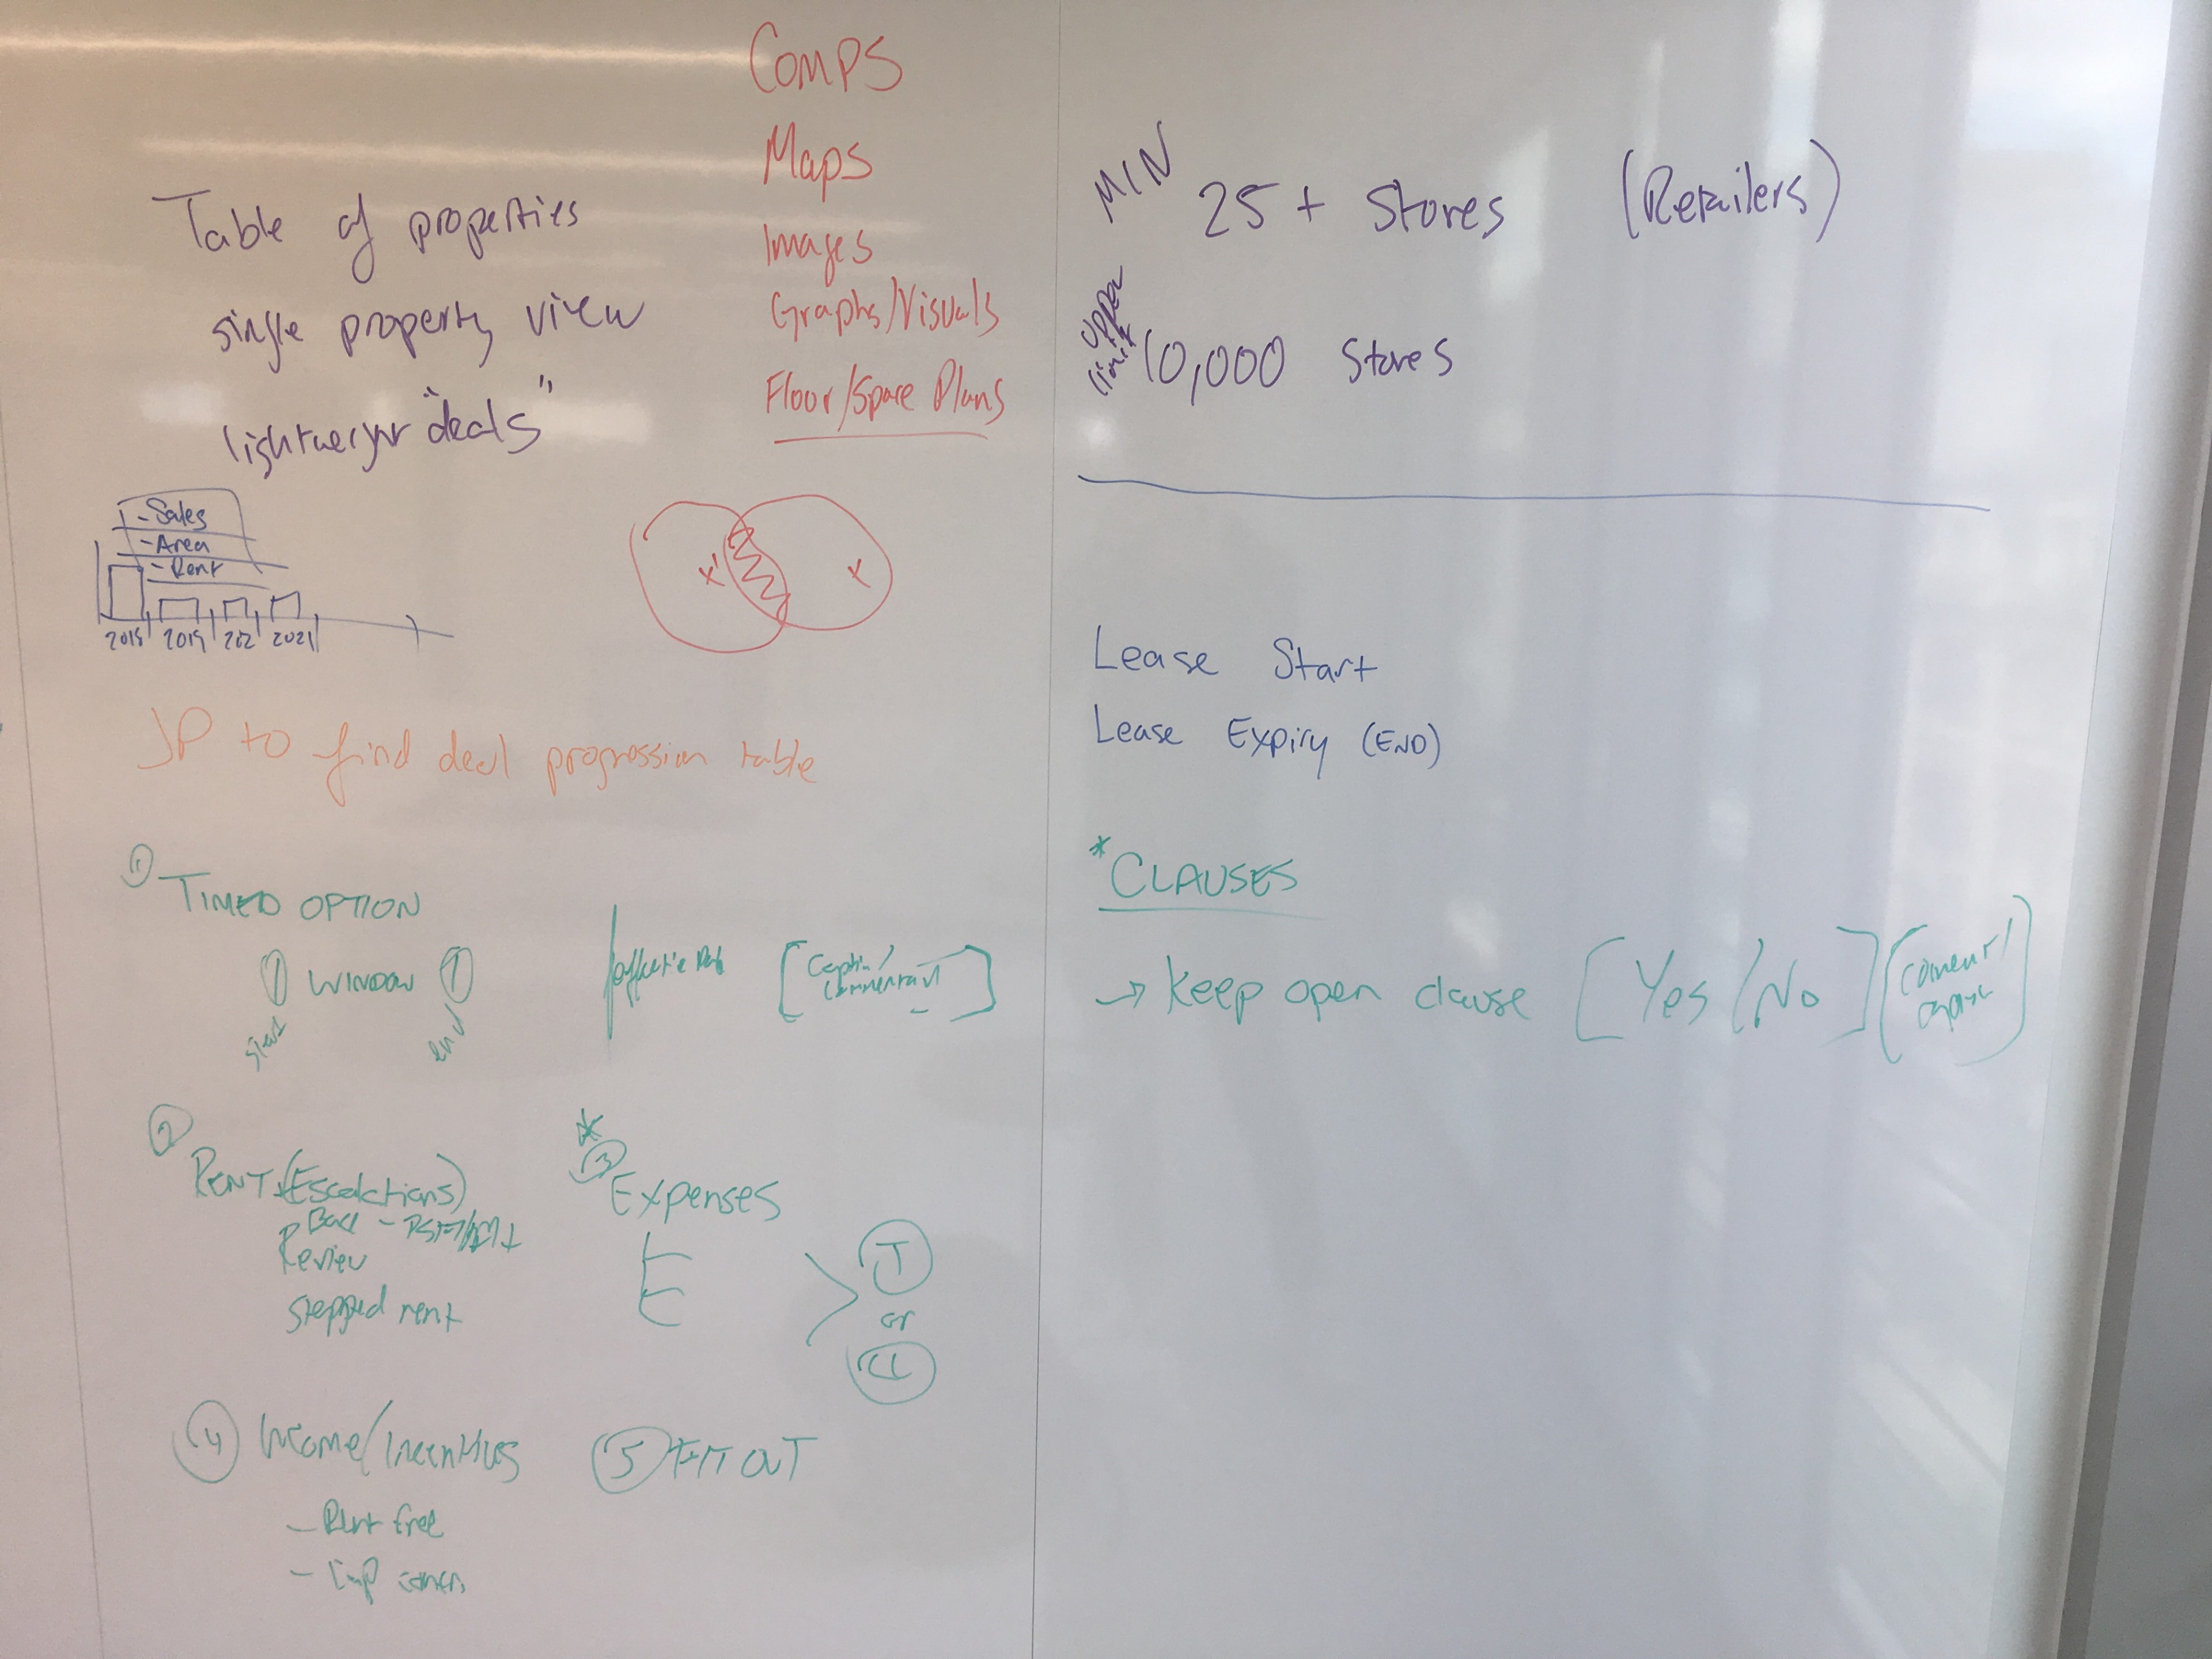 Comps
Maps
Images
Graphs/Visuals
Floor/Space Plans
Table of properties
single property view
lightweight "deals"
- Sales
- Area
- Rent
2018 2019 202 2021
X' X
JP to find deal progression table
1 TIMED OPTION
1 WINDOW 1
start end
effective date
[Caption/
Commentary]
2 RENT (Escalations)
Base -
Review
stepped rent
* 3 Expenses
T
or
LL
4 Income/Incentives
- Rent free
5 FIT OUT
MIN 25+ Stores (Retailers)
Upper
limit 10,000 Stores
Lease Start
Lease Expiry (END)
* CLAUSES
→ Keep open clause [Yes/No] (comment/